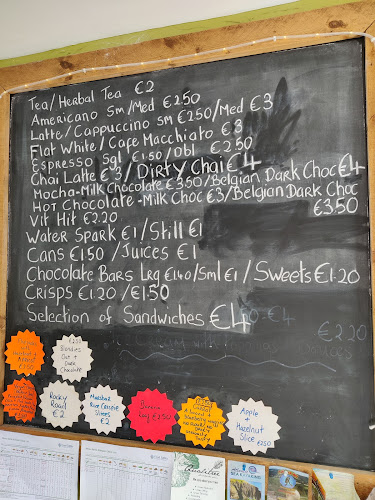 Tea/Herbal Tea €2
Americano Sm/Med €2.50
Latte/Cappuccino sm €2.50/Med €3
Flat White/Cafe Macchiato €3
Espresso Sgl €1.50/Dbl €2.50
Chai Latte €3/Dirty Chai €4
Mocha-Milk Chocolate €3.50/Belgian Dark Choc €4
Hot Chocolate-Milk Choc €3/Belgian Dark Choc
€3.50
Vit Hit €2.20
Water Spark €1/Still €1
Cans €1.50/Juices €1
Chocolate Bars Lrg €1.40/Sml €1/Sweets €1.20
Crisps €1.20/€1.50
Selection of Sandwiches €4
€2.20
€2.50
Blondies
Oat +
Dark
Chocolate
Rocky
Road
€2
Rice Crispie
Slices
€2
Banana
€2.50
Apple
+
Hazelnut
Slice
€2.50